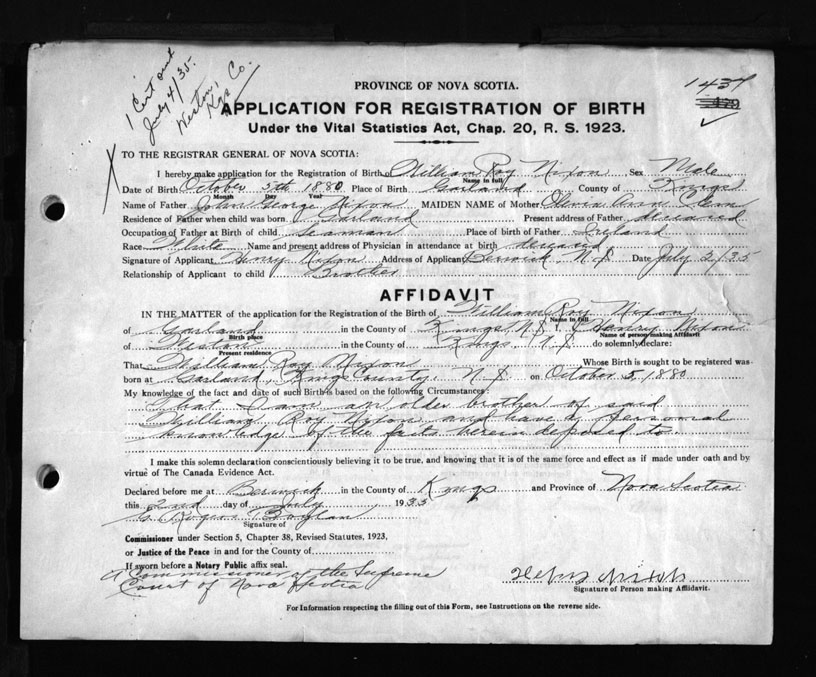 1 Cert and
July 4/35.
Weston,
Kgs Co.
1437
PROVINCE OF NOVA SCOTIA.
APPLICATION FOR REGISTRATION OF BIRTH
Under the Vital Statistics Act, Chap. 20, R. S. 1923.
TO THE REGISTRAR GENERAL OF NOVA SCOTIA:
I hereby make application for the Registration of Birth of William Roy Nixon Sex Male
Name in full
Date of Birth October 5th 1880 Place of Birth Garland County of Kings
Month Day Year
Name of Father John George Nixon MAIDEN NAME of Mother Ann
Residence of Father when child was born Garland Present address of Father deceased
Occupation of Father at Birth of child Seaman Place of birth of Father Ireland
Race White Name and present address of Physician in attendance at birth deceased
Signature of Applicant Henry Nixon Address of Applicant Berwick, N.S Date July 2/35
Relationship of Applicant to child Brother
AFFIDAVIT
IN THE MATTER of the application for the Registration of the Birth of William Roy Nixon
Name in full
of Garland in the County of Kings N.S I, Henry Nixon
Birth place Name of person making Affidavit
of Weston in the County of Kings N.S do solemnly declare:
Present residence
That William Roy Nixon Whose Birth is sought to be registered was
born at Garland, Kings County, N.S on October 5, 1880
My knowledge of the fact and date of such Birth is based on the following Circumstances:
That I am an older brother of said
William Roy Nixon and have a personal
knowledge of the facts herein deposed to.
I make this solemn declaration conscientiously believing it to be true, and knowing that it is of the same force and effect as if made under oath and by
virtue of The Canada Evidence Act.
Declared before me at Berwick in the County of Kings and Province of Nova Scotia
this 2nd day of July 1935
Signature of
Commissioner under Section 5, Chapter 38, Revised Statutes, 1923,
or Justice of the Peace in and for the County of
If sworn before a Notary Public affix seal.
A Commissioner of the Supreme
Court of Nova Scotia
Henry Nixon
Signature of Person making Affidavit.
For Information respecting the filling out of this Form, see Instructions on the reverse side.